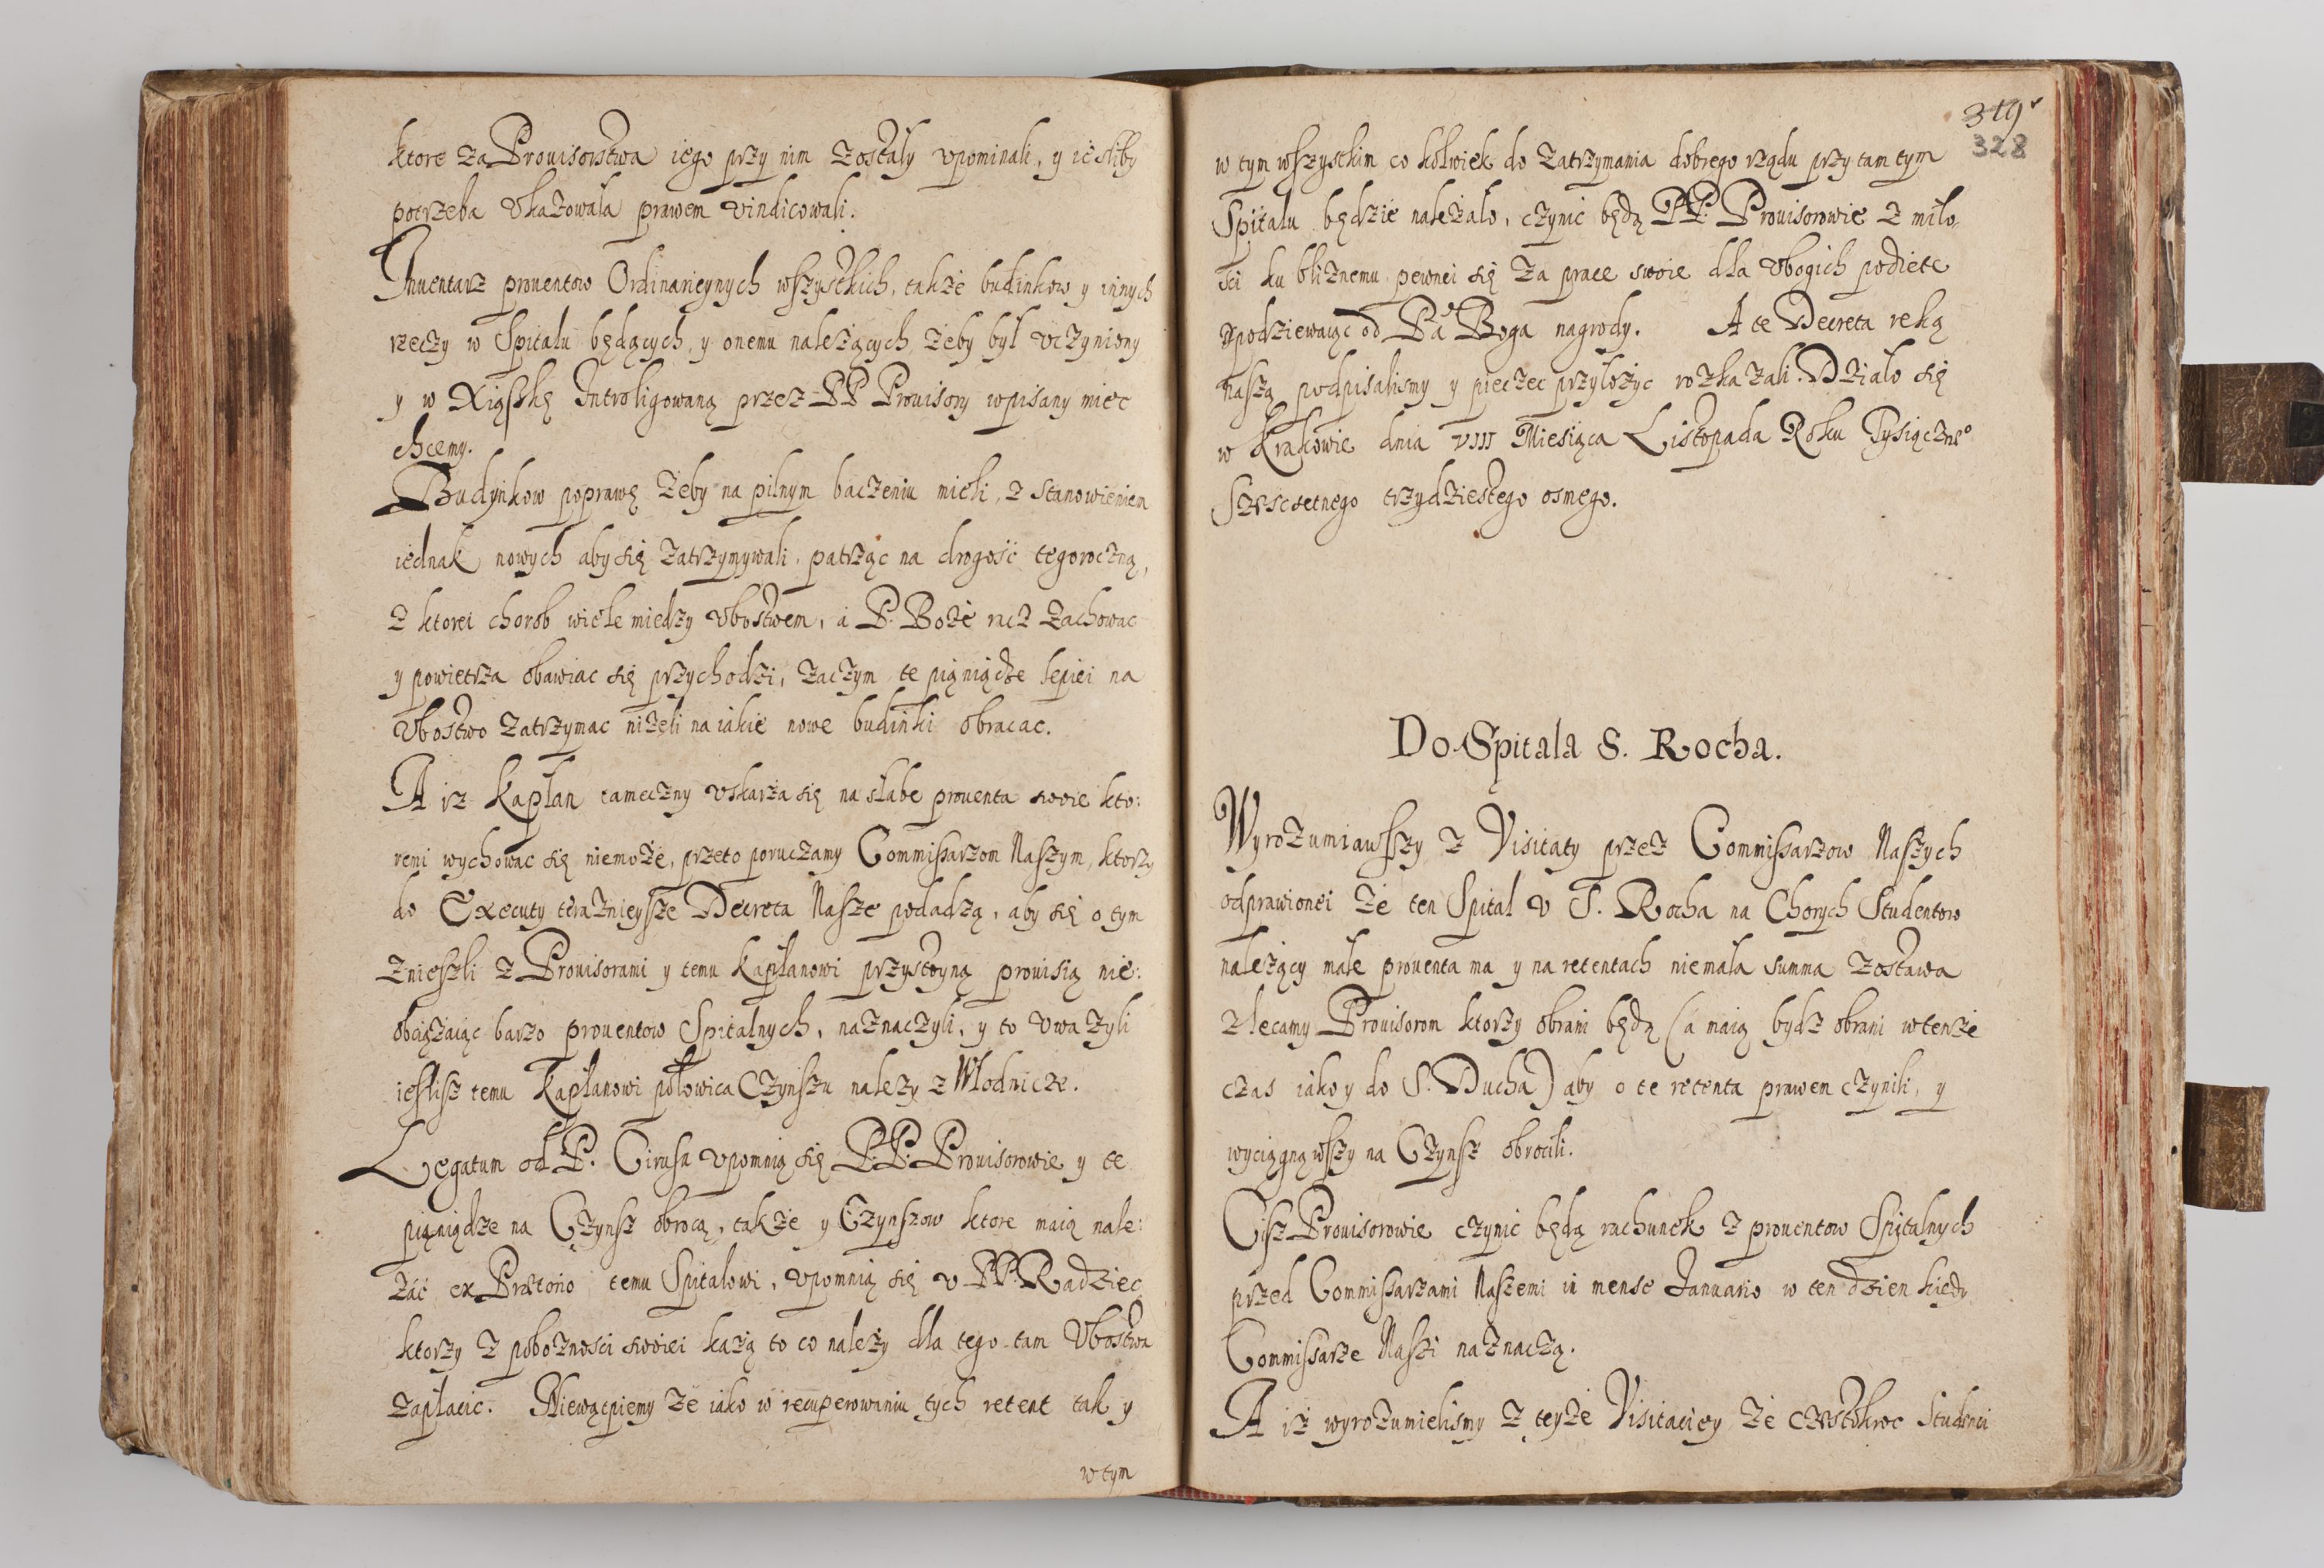 ktore za Prouisorstwa iego przy nim zostały vpominali, y iesliby
potrzeba vkazowała prawem vindicowali.
Inuentarz prouentow Ordinarieynych wszystkich, także budinkow y innych
rzeczy w Spitalu będących, y onemu należących, żeby był vczyniony
y w Xiąszkę Introligowaną przez PP Prouisory wpisany miec
chcemy.
Budynkow poprawę żeby na pilnym baczeniu mieli, z stanowieniem
iednak nowych aby się zatrzymywali, patrząc na drogość tegoroczną,
z ktorei chorob wiele miedzy vbostwem, a P. Boże racz zachowac
y powietrza obawiac się przychodzi, zaczym te piąniądze lepiei na
Vbostwo zatrzymac niżeli na iakie nowe budinki obracac.
A iz Kapłan tameczny vskarża się na słabe prouenta swoie kto:
remi wychowac się niemoże, przeto poruczamy Commissarzom Naszym, ktorzy
do Executy teraznieysze Decreta Nasze podadzą, aby się o tym
znieszli z Prouisorami y temu kapłanowi przystoyną prouisią nie:
obciążaiąc barzo prouentow Spitalnych, naznaczyli, y to vważyli
ieslisz temu Kapłanowi połowica Czynszu należy z Włodnicze.
Legatum od P. Cirusa vpomnią się P.P. Prouisorowie y te
piąniądze na Czynsz obrocą, także y Czynszow ktore maią nale:
żać ex Prætorio temu Spitalowi, vpomnią się v PP. Radziec
ktorzy z pobożności swoiei każą to co należy dla tego tam Vbostwa
zapłacic. Niewątpiemy że iako w recuperowaniu tych retent tak y
w tym
319
328
w tym wszystkim co kolwiek do zatrzymania dobrego rządu przy tam tym
Spitalu będzie należało, czynić będą PP. Prouisorowie z miło-
ści ku bliznemu pewnei się za prace swoie dla vbogich podięte
spodziewaiąc od Pa Boga nagrody. A te Decreta ręką
naszą podpisalismy y pieczęc przyłożyc rozkazali. Działo się
w Krakowie dnia VIII Miesiąca Listopada Roku Tysiączneo
Szescsetnego trzydziestego osmego.
Do Spitala S. Rocha.
Wyrozumiawszy z Visitaty przez Commissarzow Naszych
odprawionei że ten Spital v S. Rocha na Chorych Studentow
należący małe prouenta ma y na retentach niemała summa zostawa
zlecamy Prouisorom ktorzy obrani będą (a maią bydz obrani w tenże
czas iako y do S. Ducha) aby o te retenta prawem czynili, y
wyciągnąwszy na Czynsz obrocili.
Cisz Prouisorowie czynic będą rachunek z prouentow Spitalnych
przed Commissarzami Naszemi in mense Januario w ten dzien kiedy
Commissarze Naszi naznaczą.
A iż wyrozumielismy z teyże Visitaciey że częstokroc Studenci